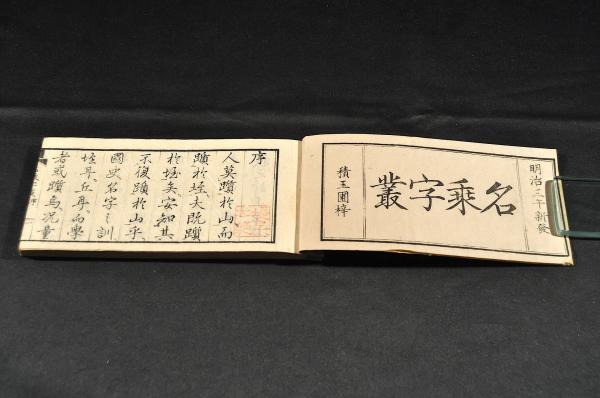 明治三午新發
名乘字叢
積玉圃梓
序
人莫躓於山而
躓於垤夫既躓
於垤矣安知其
不復躓於山乎
國史名字之訓
垤耳丘耳而學
者或躓焉況童